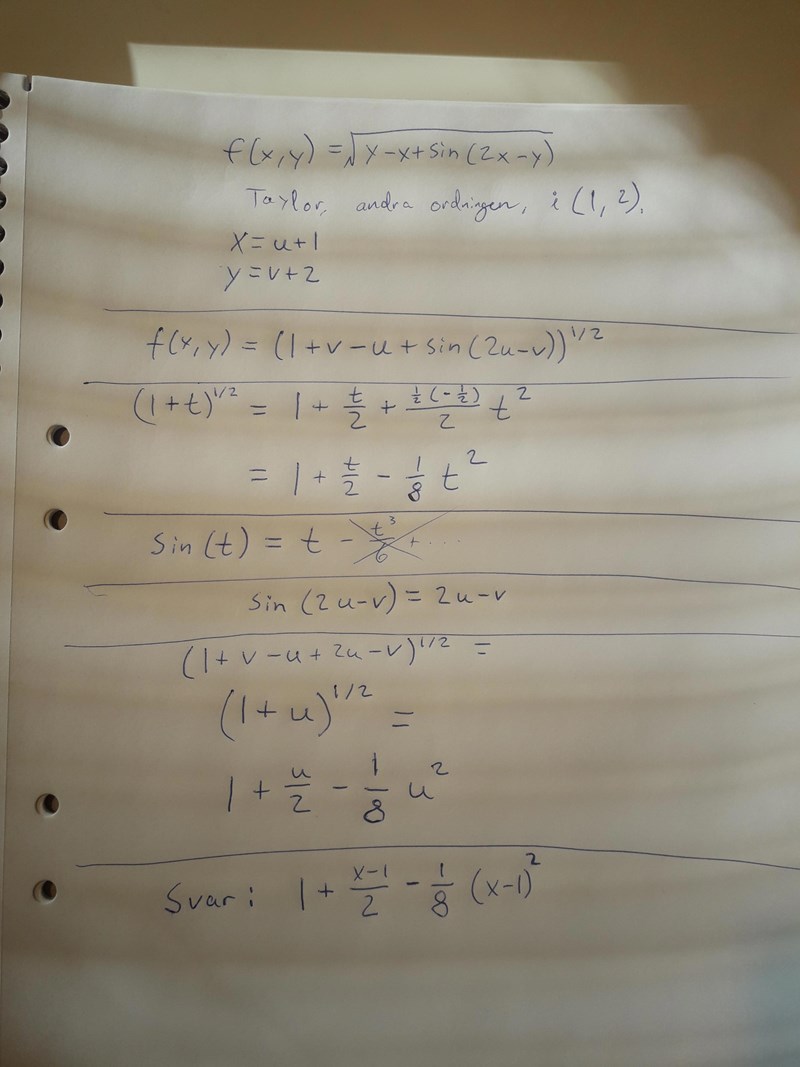 f(x,y) = √(y-x+sin(2x-y))
Taylor, andra ordningen, i (1, 2).
x = u+1
y = v+2
f(x,y) = (1+v-u+sin(2u-v))^1/2
(1+t)^1/2 = 1 + t/2 + (1/2(-1/2))/2 t^2
= 1 + t/2 - 1/8 t^2
sin(t) = t - t^3/6 + ...
sin(2u-v) = 2u-v
(1+v-u+2u-v)^1/2 =
(1+u)^1/2 =
1 + u/2 - 1/8 u^2
Svar: 1 + (x-1)/2 - 1/8 (x-1)^2